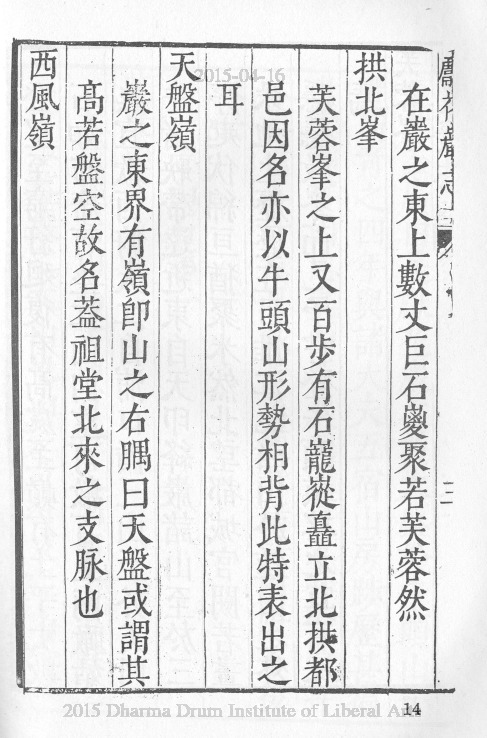 在巖之東上數丈巨石夔聚若芙蓉然
拱北峯
芙蓉峯之上又百步有石巃嵸矗立北拱都
邑因名亦以牛頭山形勢相背此特表出之
耳
天盤嶺
巖之東界有嶺卽山之右隅曰天盤或謂其
高若盤空故名葢祖堂北來之支脉也
西風嶺
2015-04-16
14
2015 Dharma Drum Institute of Liberal Arts